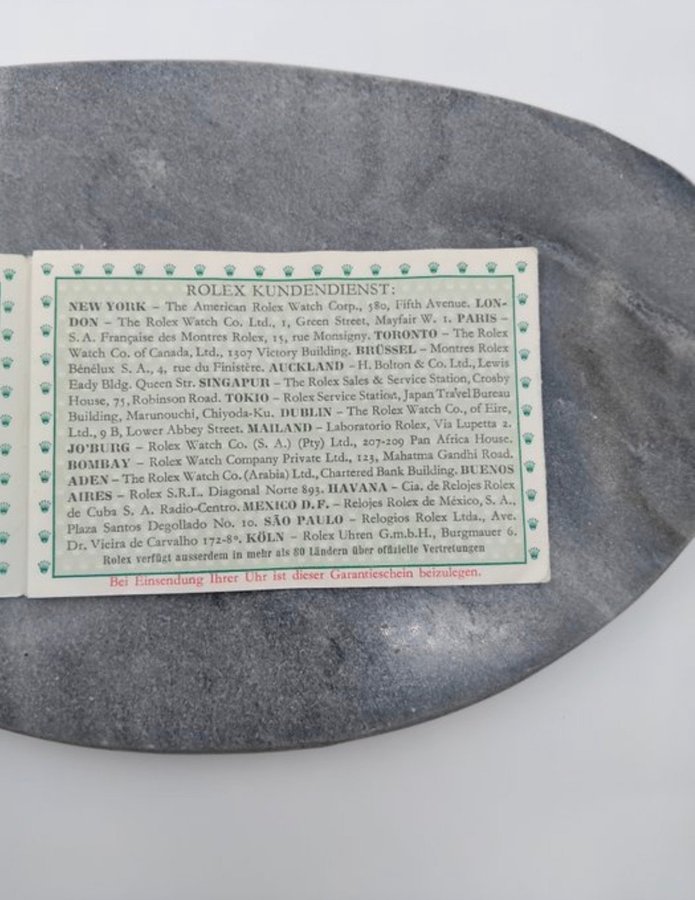 ROLEX KUNDENDIENST:
NEW YORK – The American Rolex Watch Corp., 580, Fifth Avenue. LON-
DON – The Rolex Watch Co. Ltd., 1, Green Street, Mayfair W. 1. PARIS –
S. A. Française des Montres Rolex, 15, rue Monsigny. TORONTO – The Rolex
Watch Co. of Canada, Ltd., 1307 Victory Building. BRÜSSEL – Montres Rolex
Bénélux S. A., 4, rue du Finistère. AUCKLAND – H. Bolton & Co. Ltd., Lewis
Eady Bldg. Queen Str. SINGAPUR – The Rolex Sales & Service Station, Crosby
House, 75, Robinson Road. TOKIO – Rolex Service Station, Japan Travel Bureau
Building, Marunouchi, Chiyoda-Ku. DUBLIN – The Rolex Watch Co., of Eire,
Ltd., 9 B, Lower Abbey Street. MAILAND – Laboratorio Rolex, Via Lupetta 2.
JO'BURG – Rolex Watch Co. (S. A.) (Pty) Ltd., 207-209 Pan Africa House.
BOMBAY – Rolex Watch Company Private Ltd., 123, Mahatma Gandhi Road.
ADEN – The Rolex Watch Co. (Arabia) Ltd., Chartered Bank Building. BUENOS
AIRES – Rolex S.R.L. Diagonal Norte 893. HAVANA – Cia. de Relojes Rolex
de Cuba S. A. Radio-Centro. MEXICO D. F. – Relojes Rolex de México, S. A.,
Plaza Santos Degollado No. 10. SÃO PAULO – Relogios Rolex Ltda., Ave.
Dr. Vieira de Carvalho 172-8º. KÖLN – Rolex Uhren G.m.b.H., Burgmauer 6.
Rolex verfügt ausserdem in mehr als 80 Ländern über offizielle Vertretungen
Bei Einsendung Ihrer Uhr ist dieser Garantieschein beizulegen.